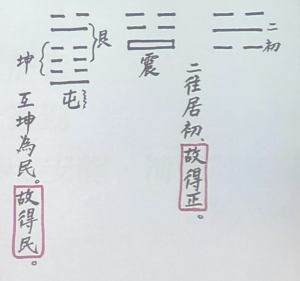 二
初
震
二往居初、故得正。
艮
坤
屯
互坤為民。故得民。